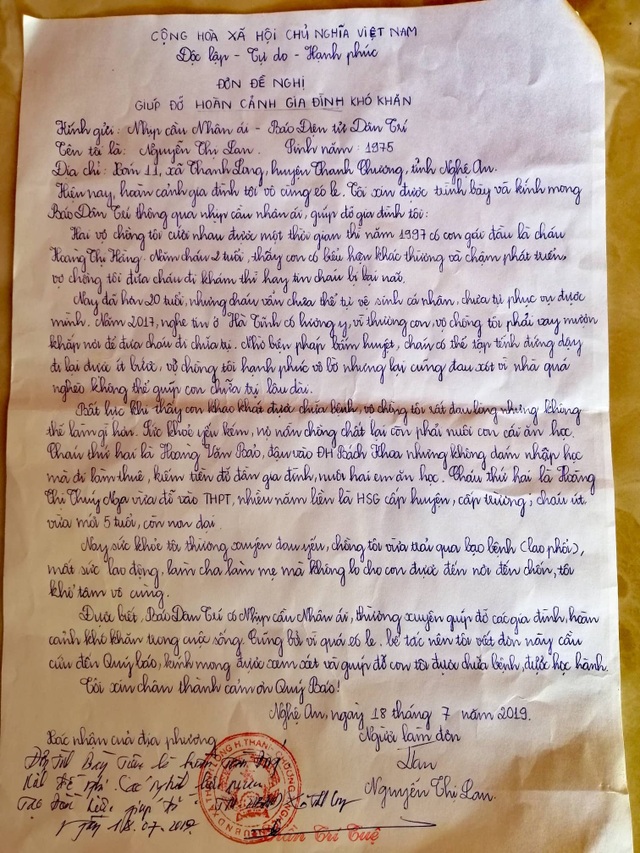 CỘNG HOÀ XÃ HỘI CHỦ NGHĨA VIỆT NAM
Độc lập - Tự do - Hạnh phúc
ĐƠN ĐỀ NGHỊ
GIÚP ĐỠ HOÀN CẢNH GIA ĐÌNH KHÓ KHĂN
Kính gửi: Nhịp cầu Nhân ái - Báo Điện tử Dân Trí
Tên tôi là: Nguyễn Thị Lan. Sinh năm: 1975
Địa chỉ: Xóm 11, xã Thanh Long, huyện Thanh Chương, tỉnh Nghệ An.
Hiện nay, hoàn cảnh gia đình tôi vô cùng éo le. Tôi xin được trình bày và kính mong
Báo Dân Trí thông qua nhịp cầu nhân ái, giúp đỡ gia đình tôi:
Hai vợ chồng tôi cưới nhau được một thời gian thì năm 1997 có con gái đầu là cháu
Hoàng Thị Hằng. Năm cháu 2 tuổi, thấy con có biểu hiện khác thường và chậm phát triển,
vợ chồng tôi đưa cháu đi khám thì hay tin cháu bị bại não.
Nay đã hơn 20 tuổi, nhưng cháu vẫn chưa thể tự vệ sinh cá nhân, chưa tự phục vụ được
mình. Năm 2017, nghe tin ở Hà Tĩnh có lương y, vì thương con, vợ chồng tôi phải vay mượn
khắp nơi để đưa cháu đi chữa trị. Nhờ biện pháp bấm huyệt, cháu có thể tập tễnh đứng dậy
đi lại được ít bước, vợ chồng tôi hạnh phúc vô bờ nhưng lại cũng đau xót vì nhà quá
nghèo không thể giúp con chữa trị lâu dài.
Bất lực khi thấy con khao khát được chữa bệnh, vợ chồng tôi rất đau lòng nhưng không
thể làm gì hơn. Sức khoẻ yếu kém, nợ nần chồng chất lại còn phải nuôi con cái ăn học.
Cháu thứ hai là Hoàng Văn Bảo, đậu vào ĐH Bách Khoa nhưng không dám nhập học
mà đi làm thuê, kiếm tiền đỡ đần gia đình, nuôi hai em ăn học. Cháu thứ hai là Hoàng
Thị Thúy Nga vừa đỗ vào THPT, nhiều năm liền là HSG cấp huyện, cấp trường; cháu út
vừa mới 5 tuổi, còn non dại.
Nay sức khỏe tôi thường xuyên đau yếu, chồng tôi vừa trải qua bạo bệnh (lao phổi),
mất sức lao động. Làm cha làm mẹ mà không lo cho con được đến nơi đến chốn, tôi
khổ tâm vô cùng.
Được biết, Báo Dân Trí có Nhịp cầu Nhân ái, thường xuyên giúp đỡ các gia đình, hoàn
cảnh khó khăn trong cuộc sống. Cũng bởi vì quá éo le, bế tắc nên tôi viết đơn này cầu
cứu đến Quý báo, kính mong được xem xét và giúp đỡ con tôi được chữa bệnh, được học hành.
Tôi xin chân thành cảm ơn Quý Báo!
Nghệ An, ngày 18 tháng 7 năm 2019.
Xác nhận của địa phương
Người làm đơn
Lan
Nguyễn Thị Lan.
ngày 18.07.2019
Trần Trí Tuệ